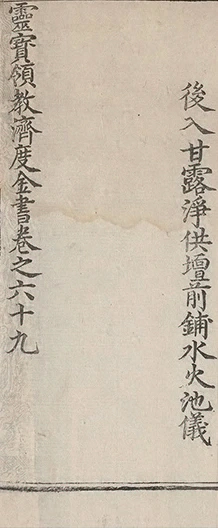 後入甘露淨供壇前鋪水火池儀
靈寶領教濟度金書卷之六十九